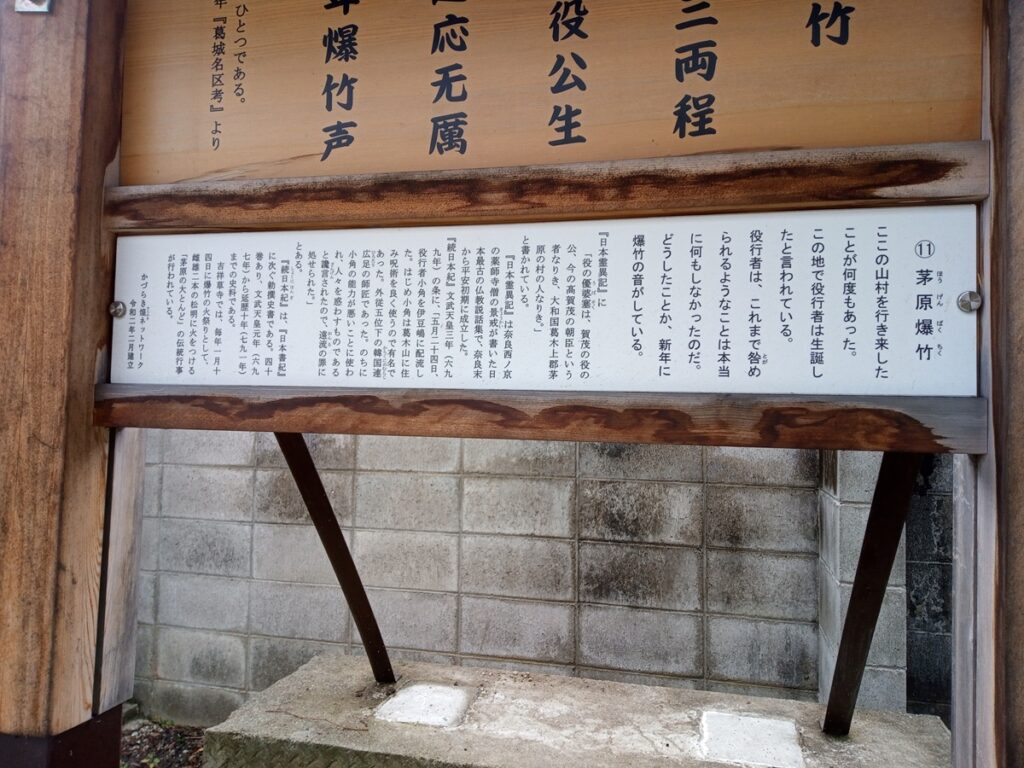 竹
両程
役公生
応无厲
爆竹声
ひとつである。
『葛城名区考』より
⑪茅原爆竹
ほう げん ばく ちく
ここの山村を行き来した
ことが何度もあった。
この地で役行者は生誕し
たと言われている。
役行者は、これまで咎め
られるようなことは本当
に何もしなかったのだ。
どうしたことか、新年に
爆竹の音がしている。
『日本霊異記』に
「役の優婆塞は、賀茂の役の
公、今の高賀茂の朝臣という
者なりき、大和国葛木上郡茅
原の村の人なりき。」
と書かれている。
『日本霊異記』は奈良西ノ京
の薬師寺僧の景戒が書いた日
本最古の仏教説話集で、奈良末
から平安初期に成立した。
『続日本紀』文武天皇三年（六九
九年）の条に、「五月二十四日、
役行者小角を伊豆嶋に配流し
た。はじめ小角は葛木山に住
み呪術を良く使うので有名で
あった。外従五位下の韓国連
広足の師匠であった。のちに
小角の能力が悪いことに使わ
れ、人々を惑わすものである
と讒言されたので、遠流の罪に
処せられた。」
とある。
『続日本紀』は、『日本書紀』
に次ぐ勅撰史書である。四十
巻あり、文武天皇元年（六九
七年）から延暦十年（七九一年）
までの史料である。
吉祥草寺では、毎年一月十
四日に爆竹の火祭りとして、
雌雄二本の松明に火をつける
「茅原の大とんど」の伝統行事
が行われている。
かづらき煌ネットワーク
令和二年二月建立